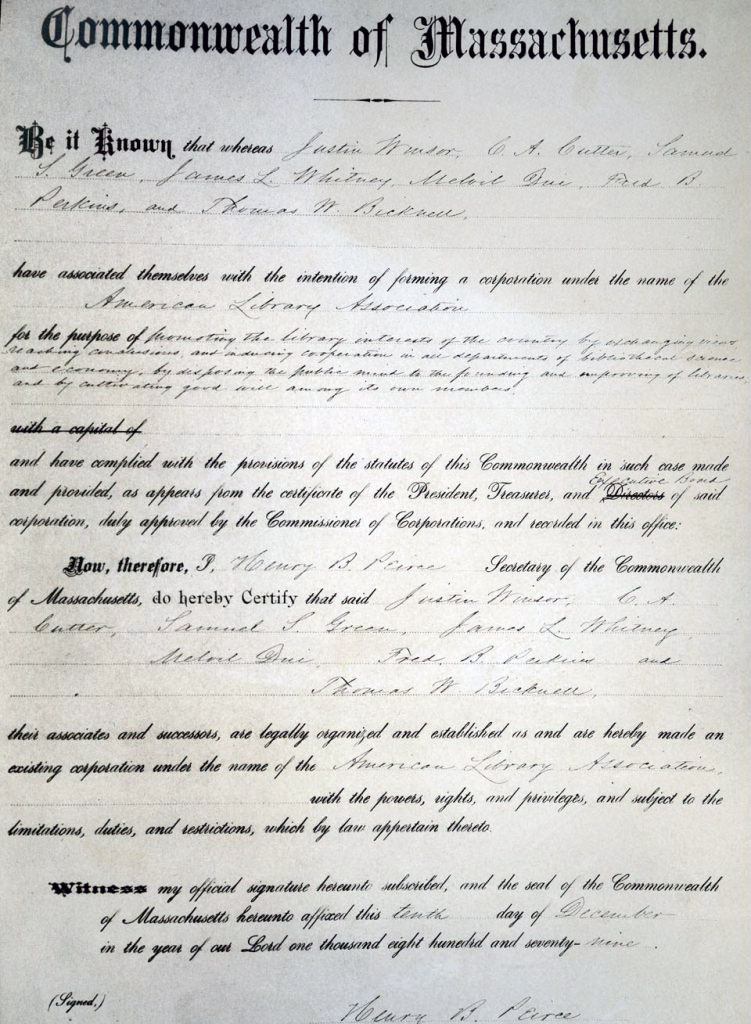 Commonwealth of Massachusetts.
Be it Known that whereas Justin Winsor, C. A. Cutter, Samuel
S. Green, James L. Whitney, Melvil Dui, Fred B.
Perkins, and Thomas W. Bicknell,
have associated themselves with the intention of forming a corporation under the name of the
American Library Association
for the purpose of promoting the library interests of the country by exchanging views,
reaching conclusions, and inducing cooperation in all departments of bibliothecal science
and economy, by disposing the public mind to the founding and improving of libraries
and by cultivating good will among its own members.
with a capital of
and have complied with the provisions of the statutes of this Commonwealth in such case made
Executive Board
and provided, as appears from the certificate of the President, Treasurer, and Directors of said
corporation, duly approved by the Commissioner of Corporations, and recorded in this office:
Now, therefore, I, Henry B. Peirce Secretary of the Commonwealth
of Massachusetts, do hereby Certify that said Justin Winsor, C. A.
Cutter, Samuel S. Green, James L. Whitney,
Melvil Dui, Fred. B. Perkins and
Thomas W. Bicknell,
their associates and successors, are legally organized and established as and are hereby made an
existing corporation under the name of the American Library Association,
with the powers, rights, and privileges, and subject to the
limitations, duties, and restrictions, which by law appertain thereto.
Witness my official signature hereunto subscribed, and the seal of the Commonwealth
of Massachusetts hereunto affixed this tenth day of December
in the year of our Lord one thousand eight hundred and seventy-nine.
(Signed,)
Henry B. Peirce